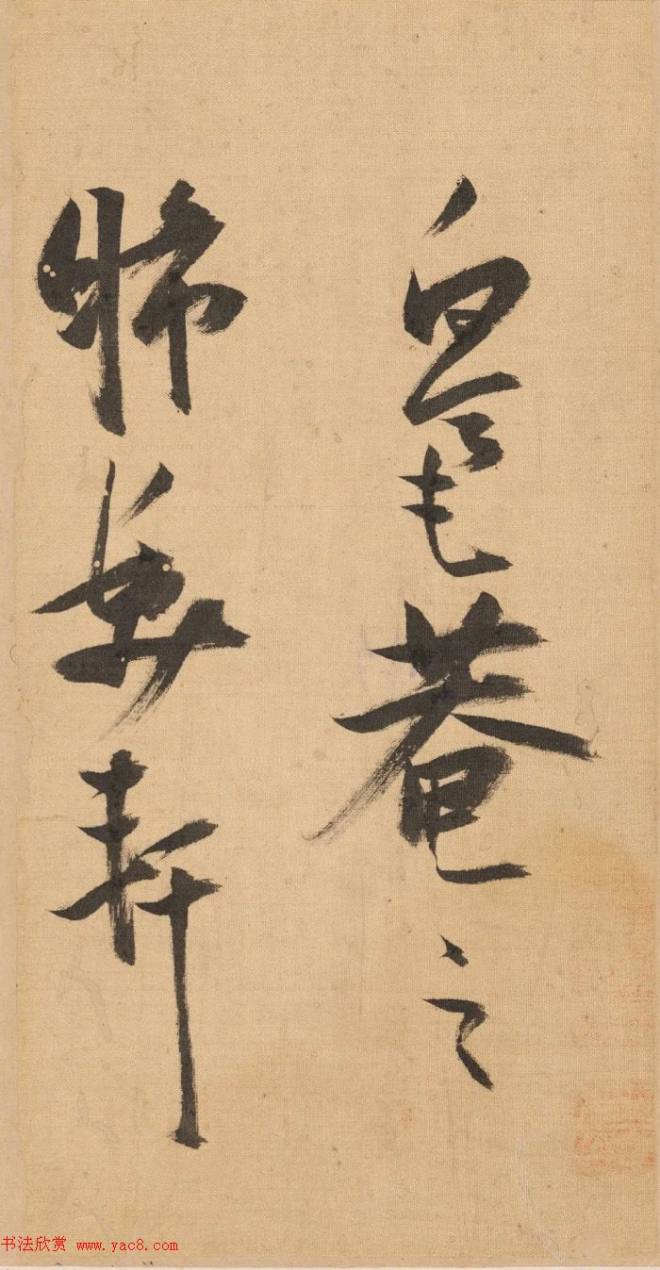 白毫菴之
晞髮軒
书法欣赏 www.yac8.com